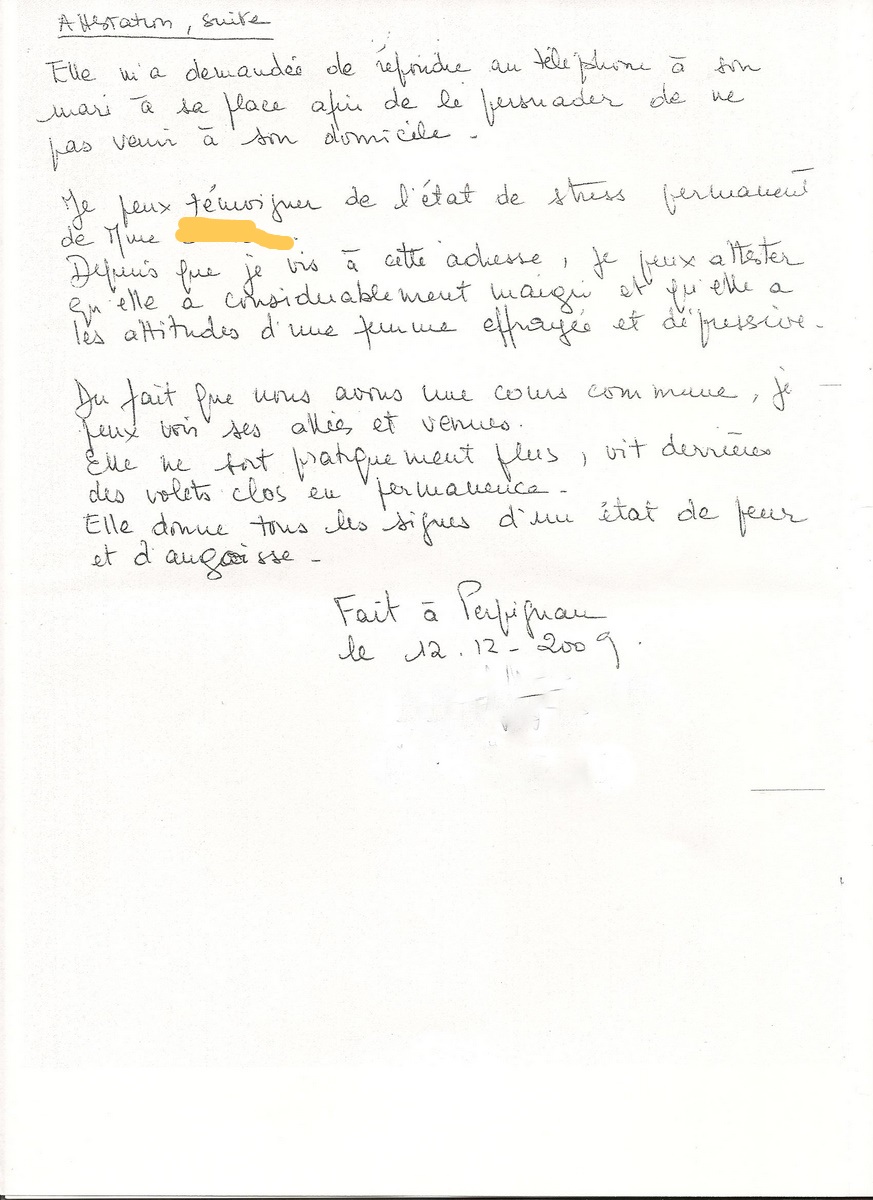 Attestation, suite
Elle m'a demandée de répondre au téléphone à son
mari à sa place afin de le persuader de ne
pas venir à son domicile.
Je peux témoigner de l'état de stress permanent
de Mme
Depuis que je vis à cette adresse, je peux attester
qu'elle a considerablement maigri et qu'elle a
les attitudes d'une femme effrayée et dépressive.
Du fait que nous avons une cours commune, je
peux voir ses allées et venues.
Elle ne sort pratiquement plus, vit derrières
des volets clos en permanence.
Elle donne tous les signes d'un état de peur
et d'angoisse.
Fait à Perpignan
le 12.12-2009.